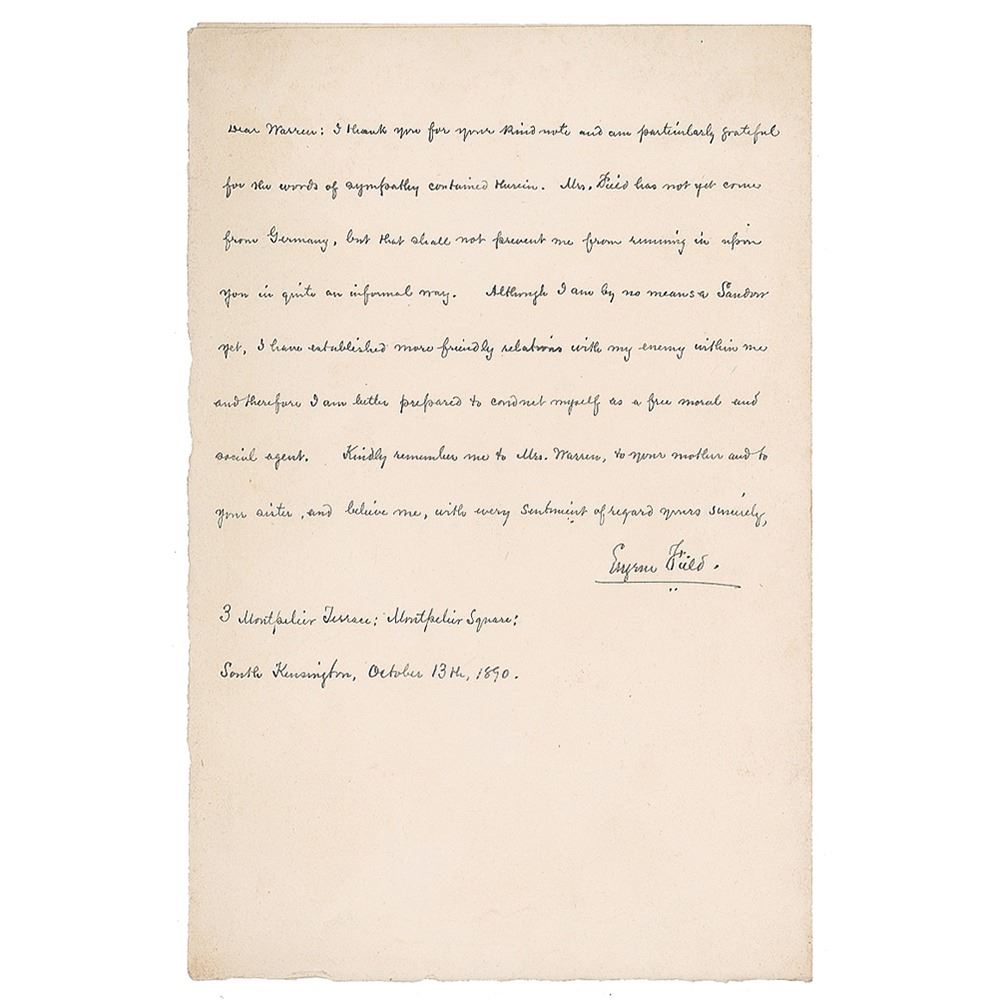 Dear Warren: I thank you for your kind note and am particularly grateful
for the words of sympathy contained therein. Mrs. Field has not yet come
from Germany, but that shall not prevent me from running in upon
you in quite an informal way. Although I am by no means a Sandow
yet, I have established more friendly relations with my enemy within me
and therefore I am better prepared to conduct myself as a free moral and
social agent. Kindly remember me to Mrs. Warren, to your mother and to
your sister, and believe me, with every sentiment of regard yours sincerely,
Eugene Field.
3 Montpelier Terrace: Montpelier Square:
South Kensington, October 13th, 1890.